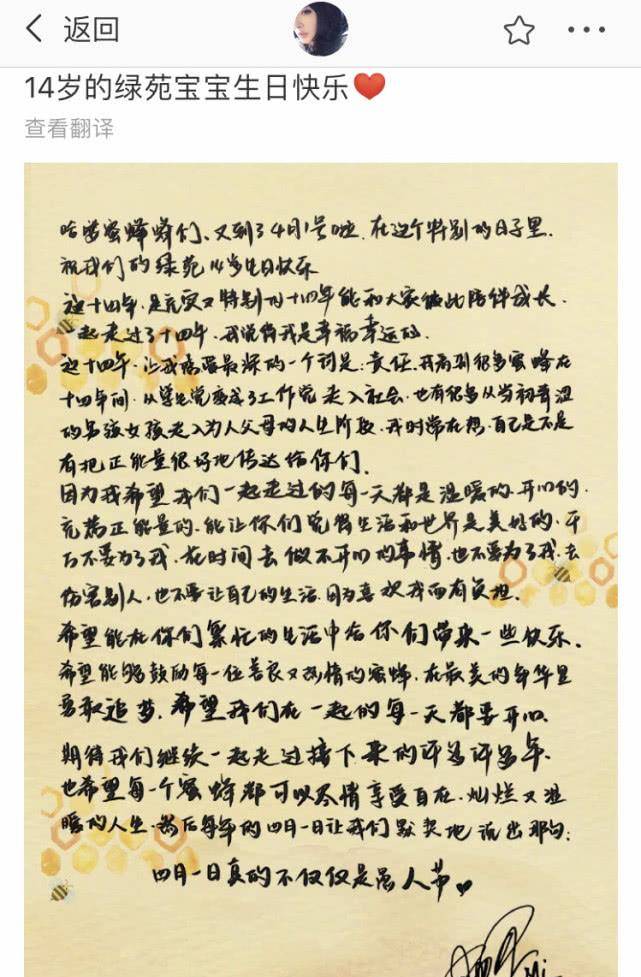 返回
14岁的绿苑宝宝生日快乐❤️
查看翻译
哈喽蜜蜂蜂们、又到了4月1号啦.在这个特别的日子里.
祝我们的绿苑14岁生日快乐
这十四年.是充实又特别的十四年能和大家彼此陪伴成长.
一起走过了十四年.我觉得我是幸福幸运的.
这十四年.让我感受最深的一个词是:责任.我看到很多蜜蜂在
十四年间.从学生党变成了工作党走入社会.也有很多从当初青涩
的男孩女孩走入为人父母的人生阶段.我时常在想.自己是不是
有把正能量很好地传达给你们.
因为我希望我们一起走过的每一天都是温暖的.开心的.
充满正能量的.能让你们觉得生活和世界是美好的.千
万不要为了我.花时间去做不开心的事情.也不要为了我.去
伤害别人.也不要让自己的生活.因为喜欢我而有负担.
希望能在你们繁忙的生活中给你们带来一些快乐.
希望能够鼓励每一位善良又热情的蜜蜂.在最美的年华里
勇敢追梦.希望我们在一起的每一天都要开心.
期待我们继续一起走过接下来的许多许多年.
也希望每一个蜜蜂都可以尽情享受自在.灿烂又温
暖的人生.然后每年的四月一日让我们默契地说出那句:
四月一日真的不仅仅是愚人节♥